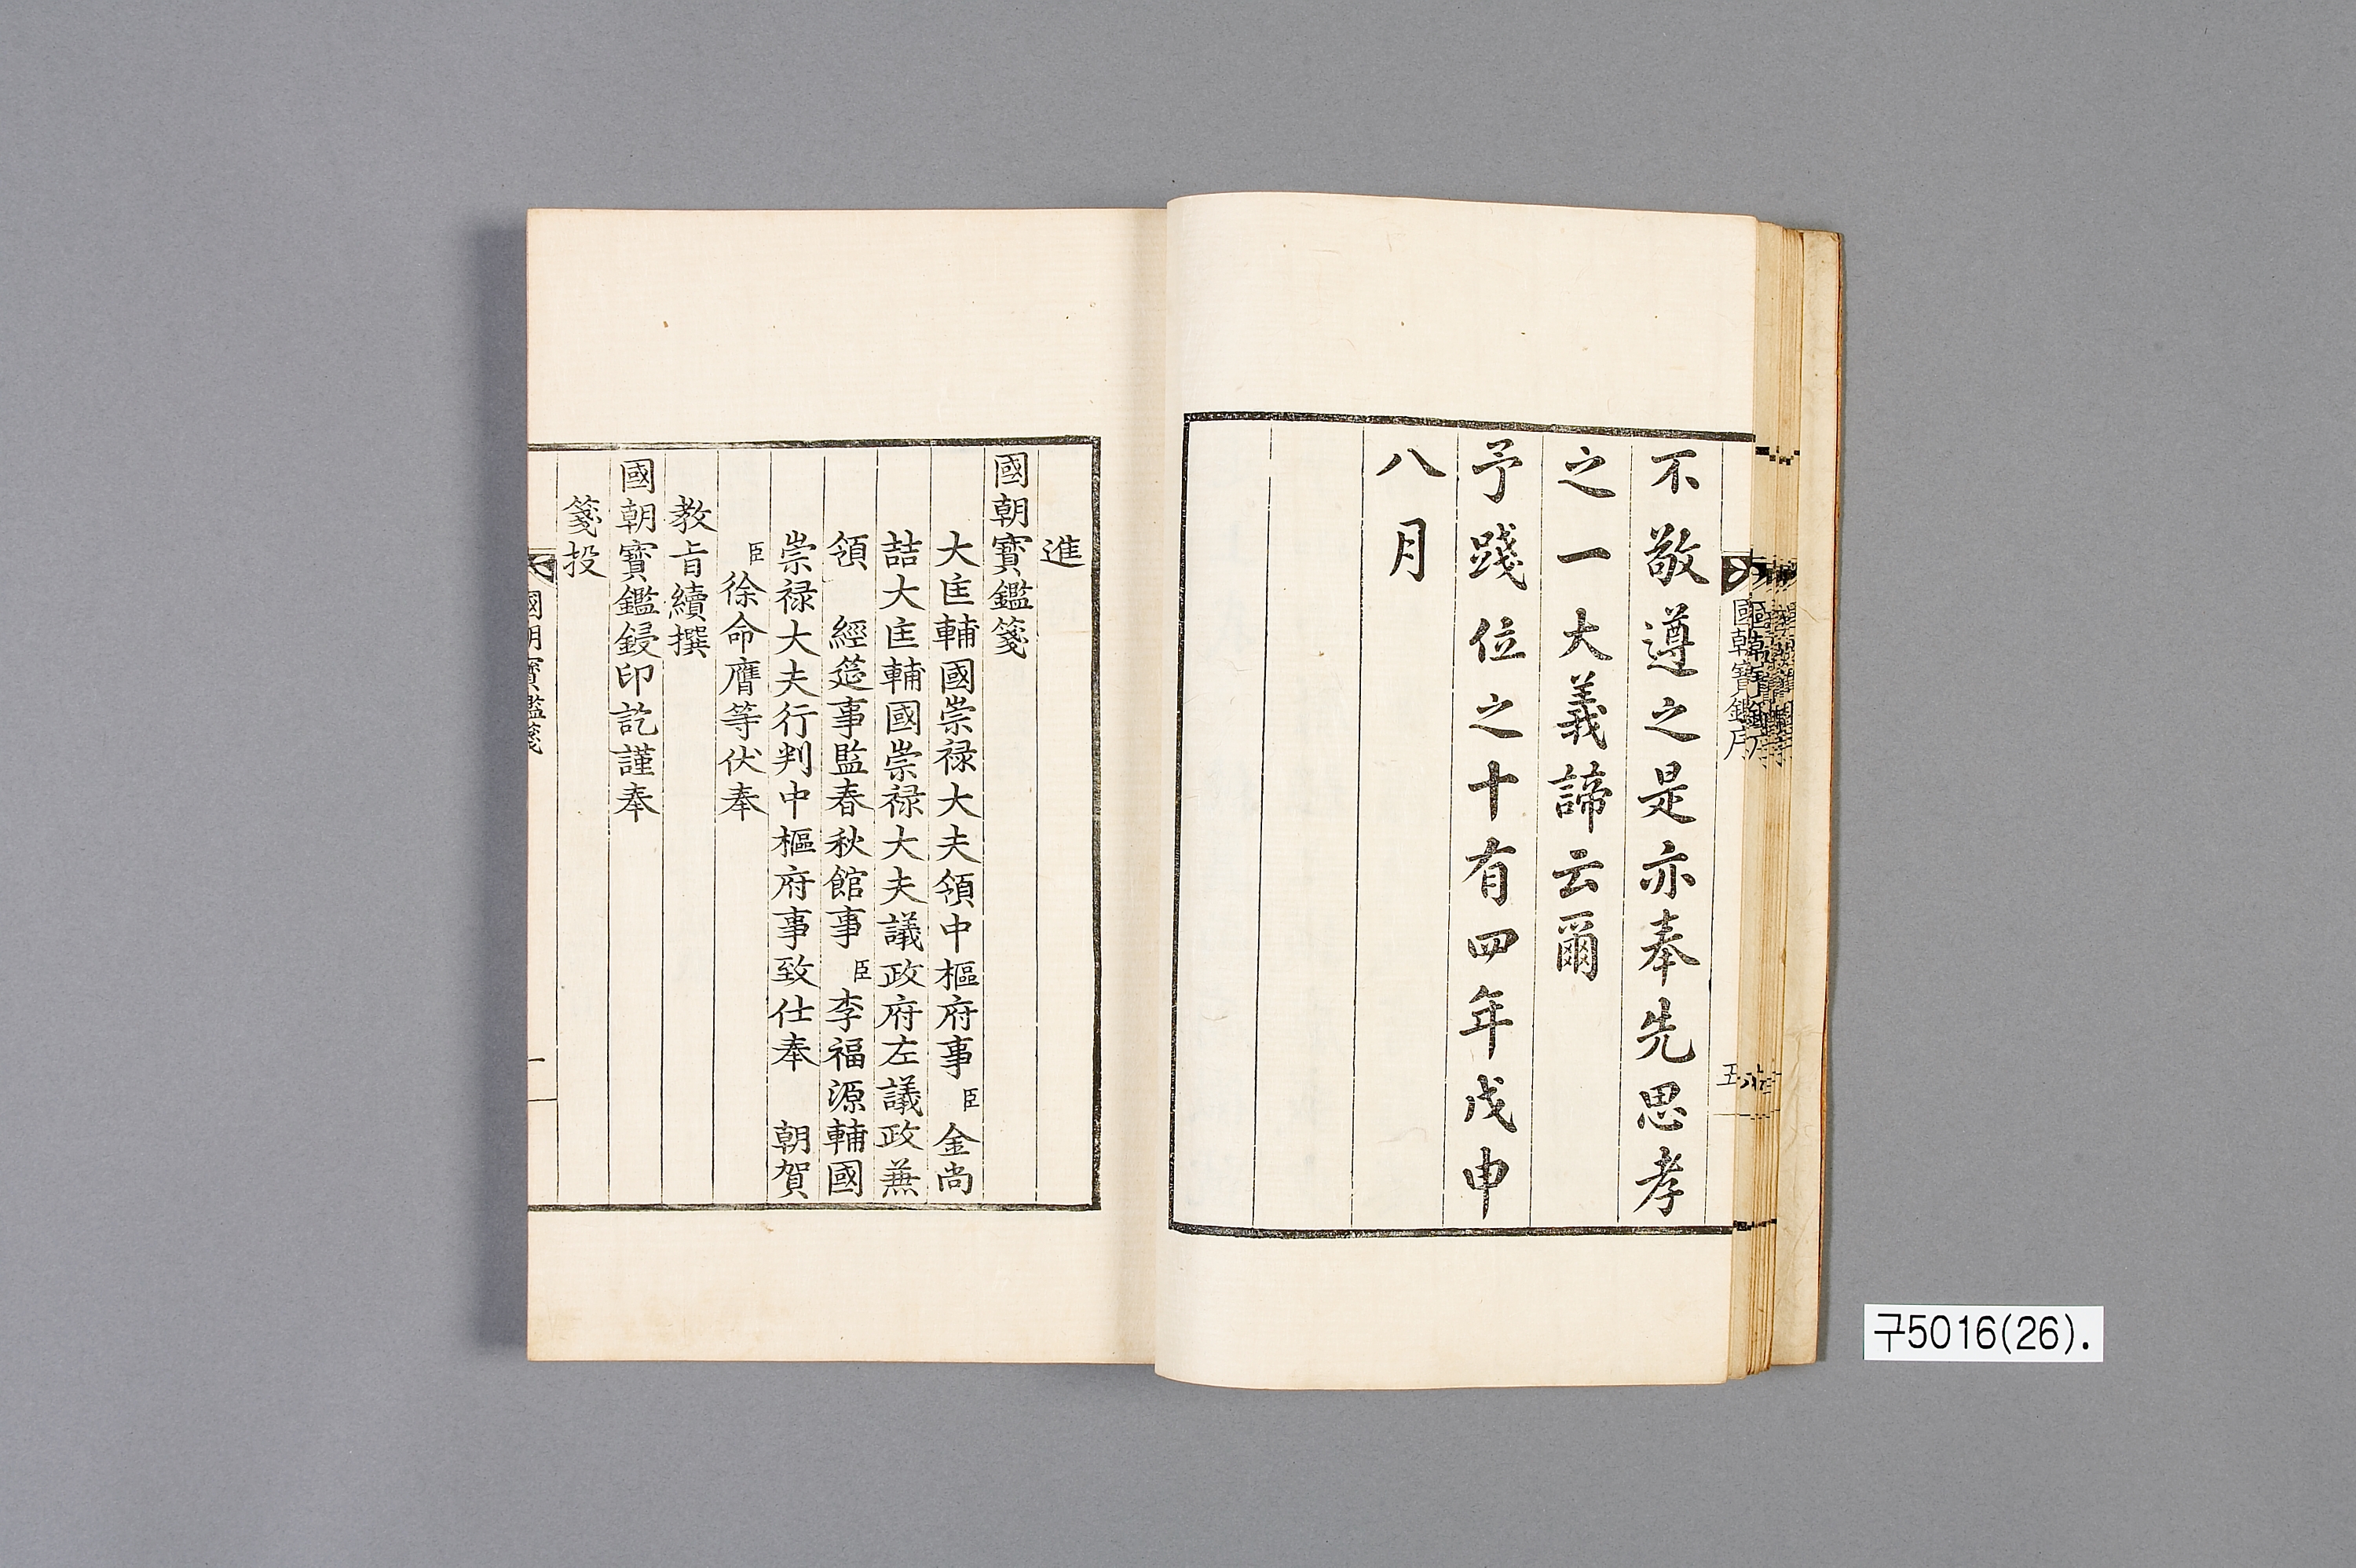 不敬遵之是亦奉先思孝
之一大義諦云爾
予踐位之十有四年戊申
八月
國朝寶鑑序
五
進
國朝寶鑑箋
大匡輔國崇禄大夫領中樞府事臣金尚
喆大匡輔國崇禄大夫議政府左議政兼
領 經筵事監春秋館事臣李福源輔國
崇禄大夫行判中樞府事致仕奉 朝賀
臣徐命膺等伏奉
教旨續撰
國朝寶鑑鋟印訖謹奉
箋投
國朝寶鑑箋
一
구5016(26).